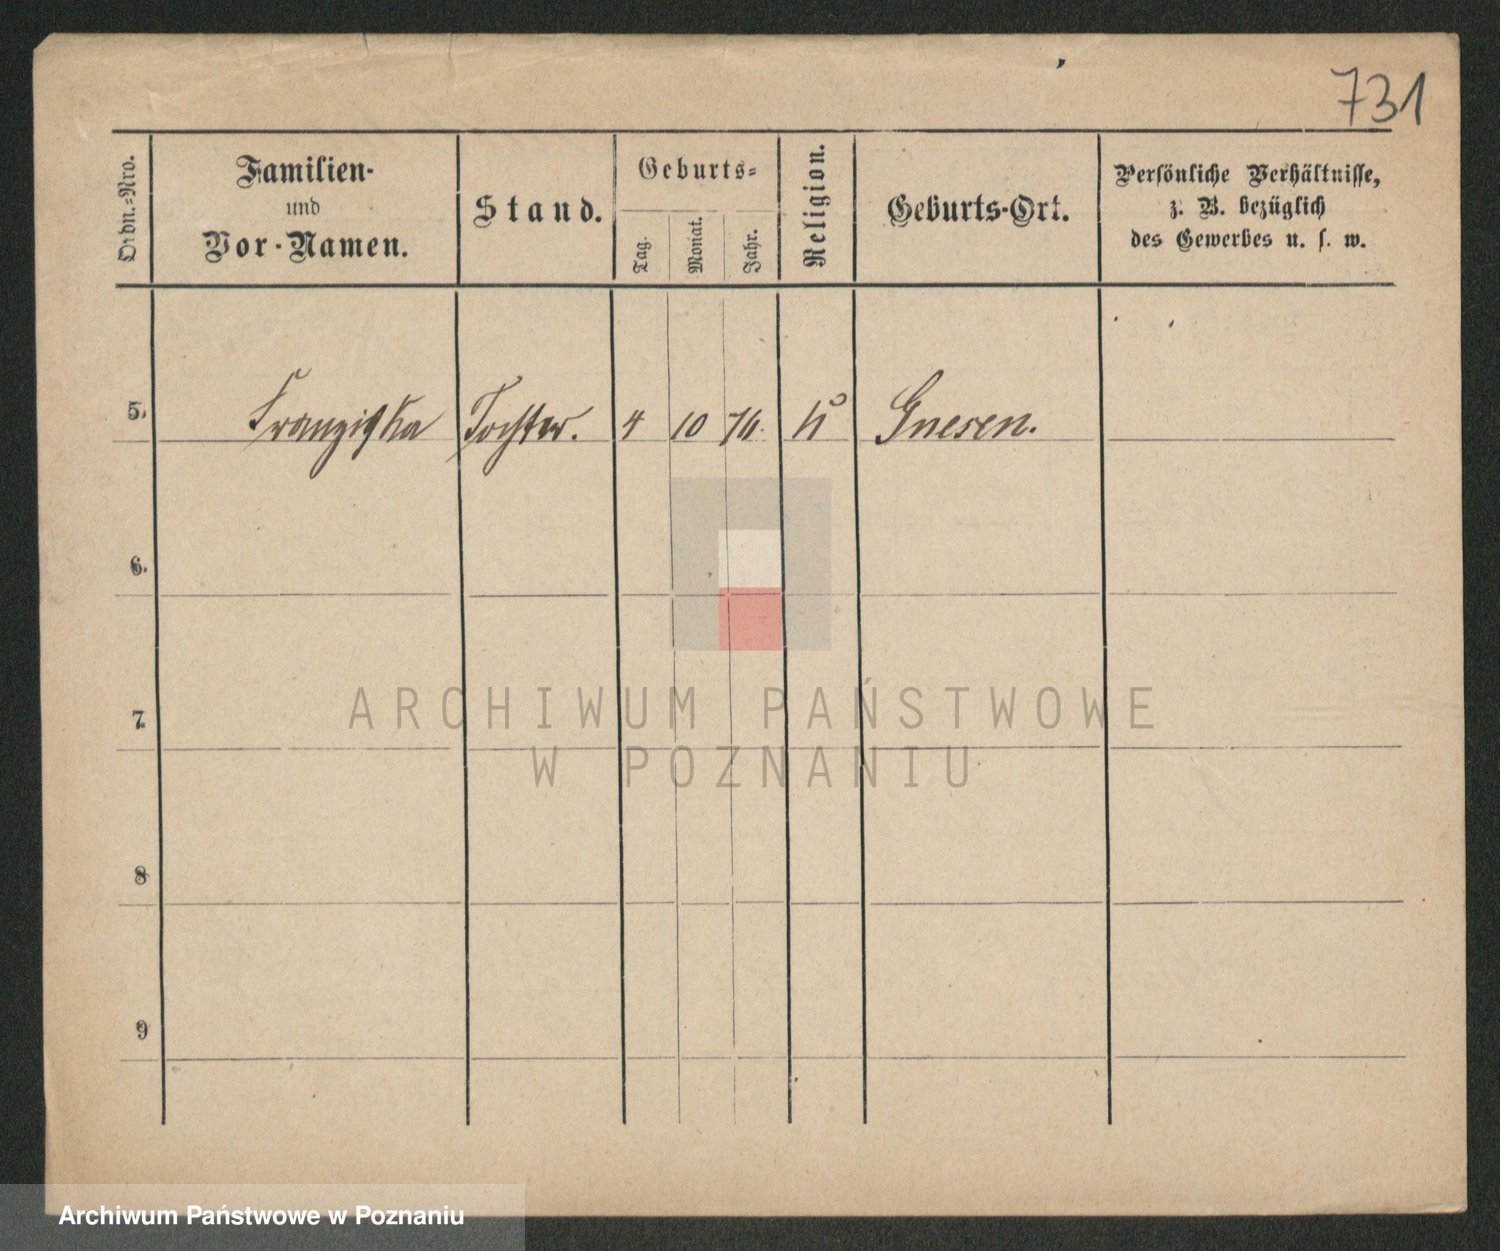 731
Ordn.-Nro.
Familien-
und
Vor-Namen.
Stand.
Geburts-
Tag.
Monat.
Jahr.
Religion.
Geburts-Ort.
Persönliche Verhältnisse,
z. B. bezüglich
des Gewerbes u. s. w.
5. Franziska Tochter. 4 10 76. Gnesen.
6.
7.
8
9
ARCHIWUM PAŃSTWOWE
W POZNANIU
Archiwum Państwowe w Poznaniu